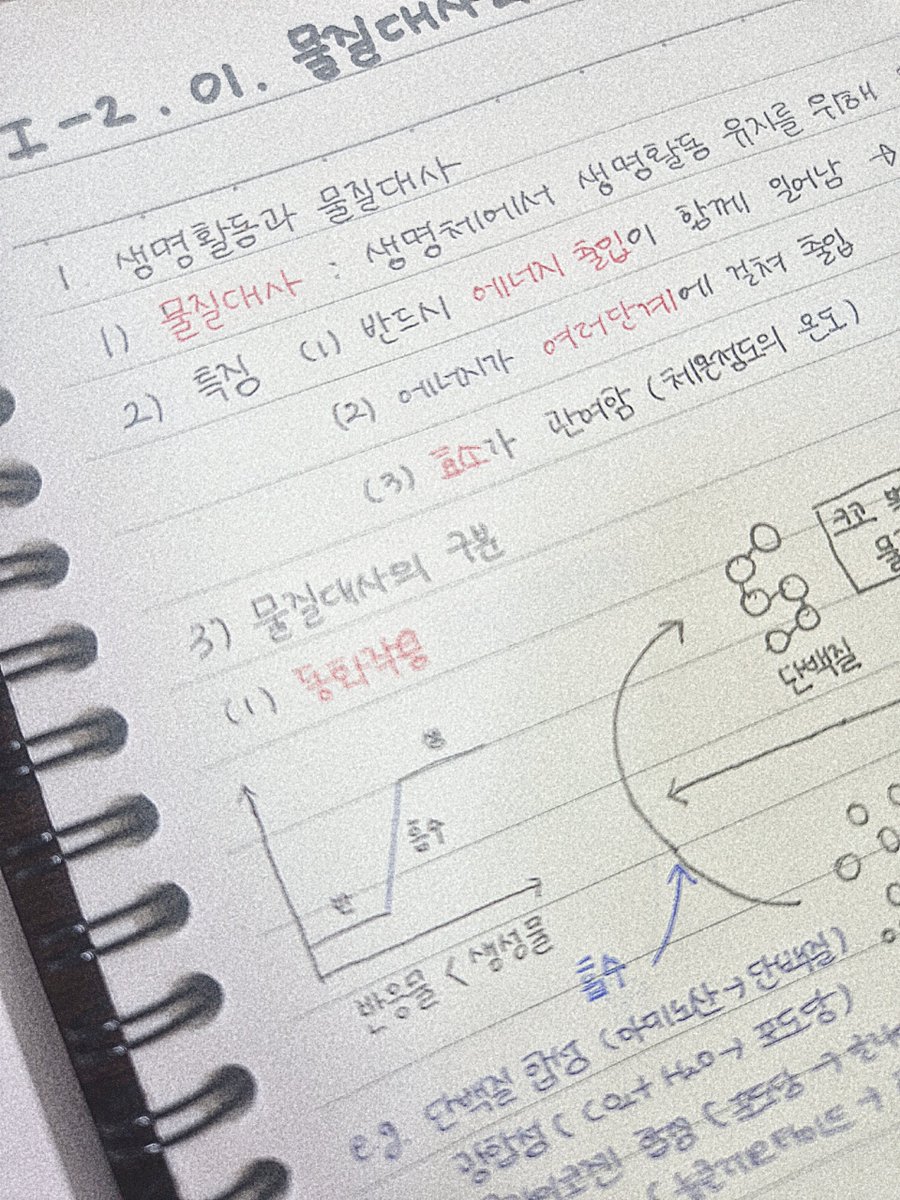 I-2. 01. 물질대사
1 생명활동과 물질대사
1) 물질대사 : 생명체에서 생명활동 유지를 위해
2) 특징 (1) 반드시 에너지 출입이 함께 일어남 →
(2) 에너지가 여러단계에 걸쳐 출입
(3) 효소가 관여함 (체온정도의 온도)
3) 물질대사의 구분
(1) 동화작용
크고
단백질
생
흡수
반
반응물 < 생성물
흡수
e.g. 단백질 합성 (아미노산 → 단백질)
광합성 ( CO₂ + H₂O → 포도당)
합성 (포도당 →